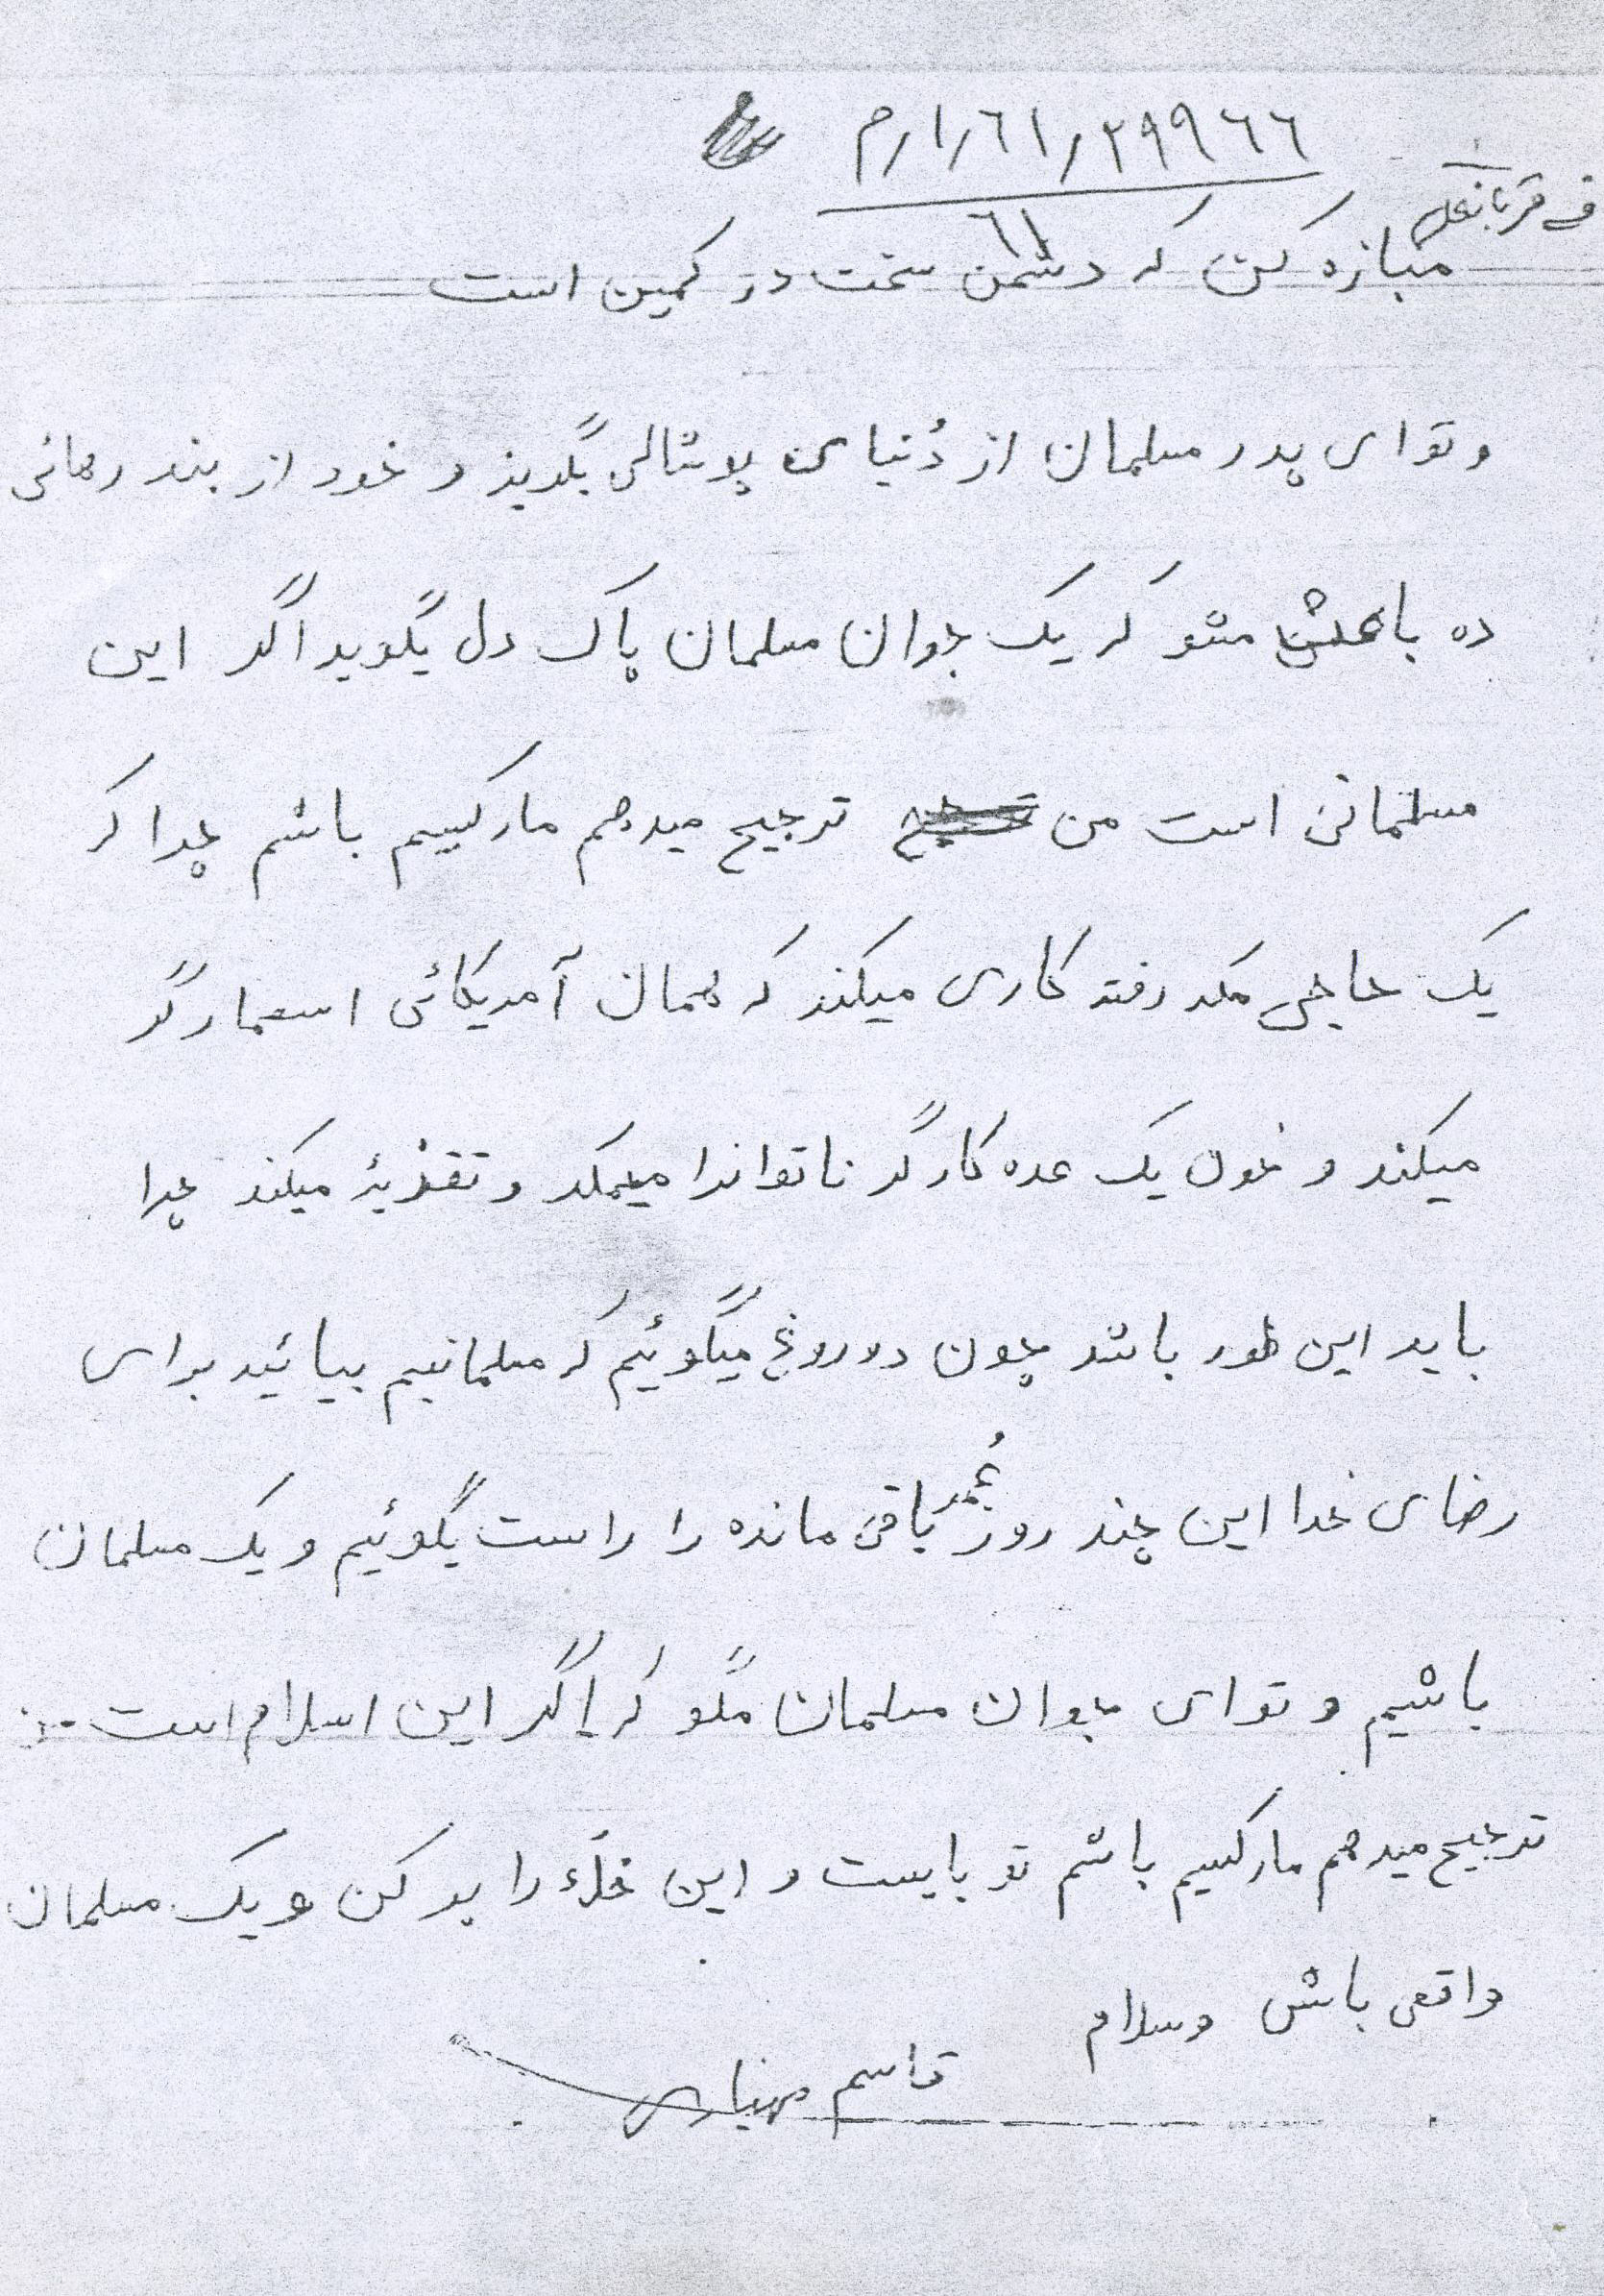 م/ر۱/۶۱/۲۹۹۶۶
۶۱
مبازه کن که دشمن سخت در کمین است
و تو ای پدر مسلمان از دُنیای پوشالی بگریز و خود از بند رهائی
ده باعش مشو که یک جوان مسلمان پاک دل بگوید اگر این
مسلمانی است من ترجیح میدهم مارکسیم باشم چرا که
یک حاجی مکه رفته کاری میکند که همان آمریکائی استعمارگر
میکند و خون یک عده کارگر ناتوانرا میمکد و تغذیهٔ میکند چرا
باید این طور باشد چون دوروغ میگوئیم که مسلمانیم بیائید برای
رضای خدا این چند روز عُمر باقی مانده را راست بگوئیم و یک مسلمان
باشیم و تو ای جوان مسلمان مگو که اگر این اسلام است من
ترجیح میدهم مارکسیم باشم تو بایست و این خلَاء را پر کن و یک مسلمان
واقعی باش وسلام
قاسم مهیاری